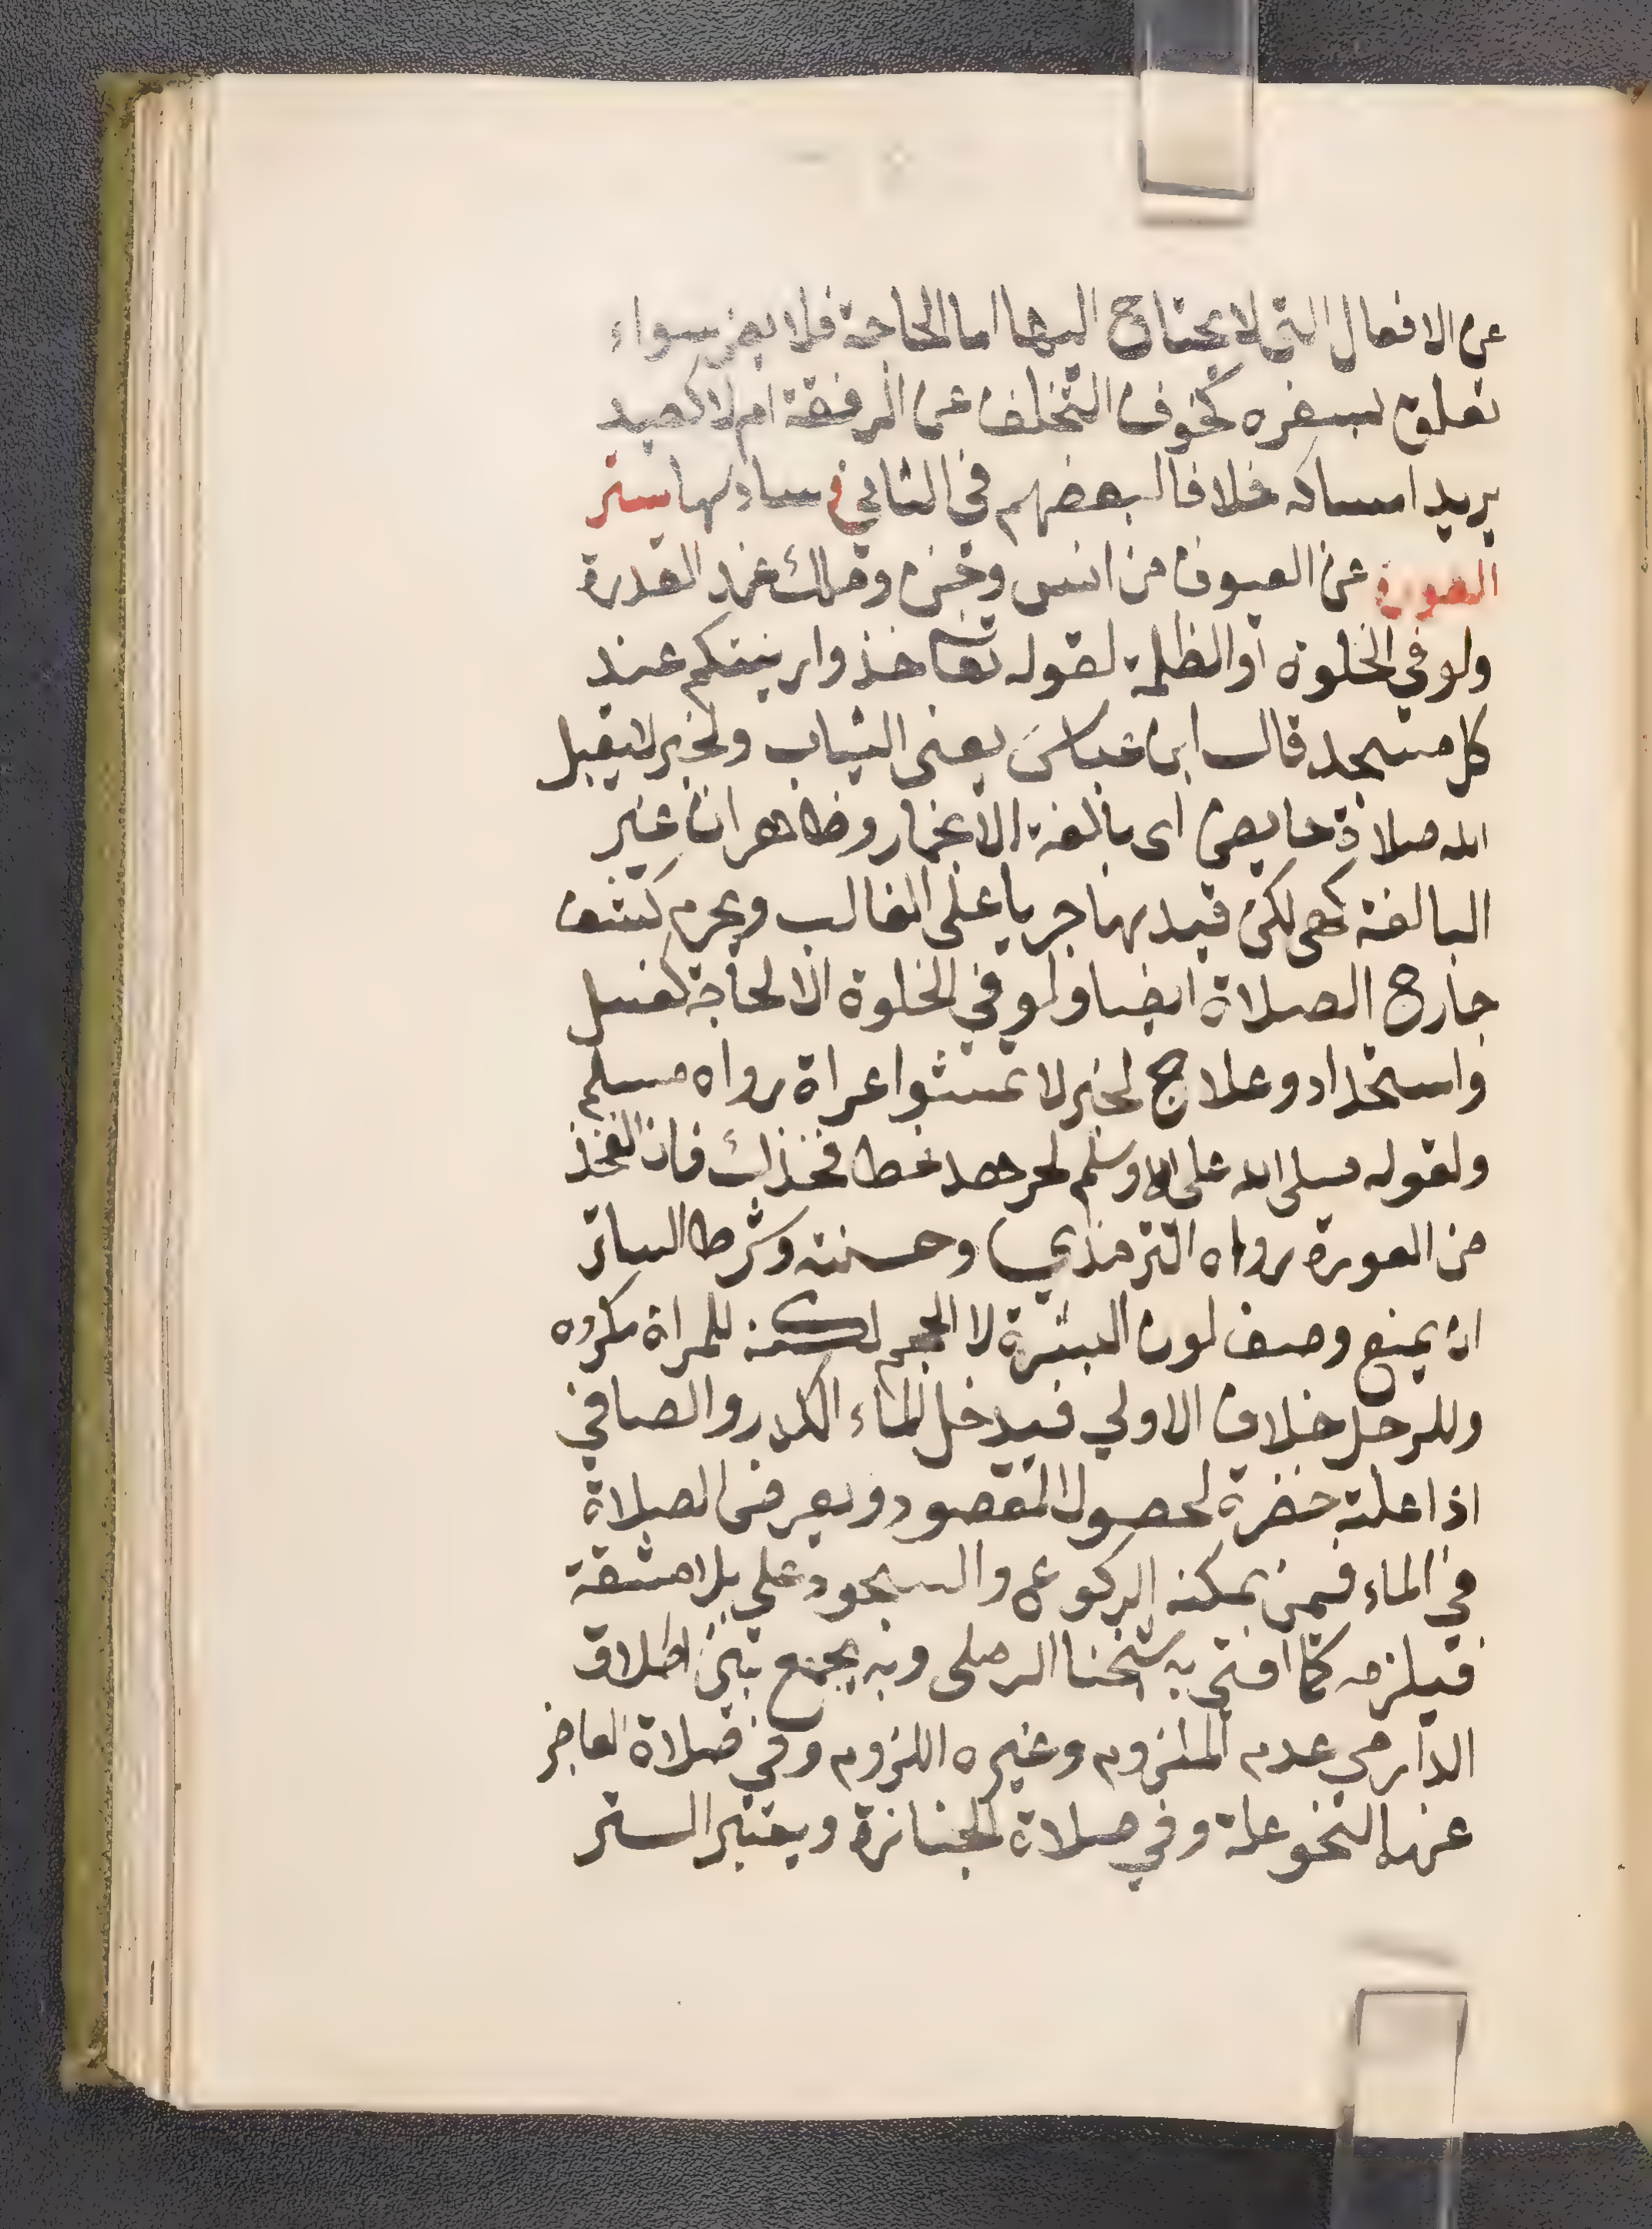 عن الافعال التي لا يحتاج اليها اما لحاجة فلا يضر سواء
تعلق بسفره كخوف التخلف عن الرفقة ام لا كصيد
يريد امساكه خلافا لبعضهم في الثاني و سادسها ستر
العورة عن العيون من انس وجن وملك عند القدرة
ولو في الخلوة او الظلمة لقوله تعا خذوا زينتكم عند
كل مسجد قال ابن عباس يعني الثياب ولخبر لا يقبل
الله صلاة حايض اي بالغة الا بخمار وظاهر ان غير
البالغة كهي لكن قيد بها جريا على الغالب ويحرم كشف
خارج الصلاة ايضا ولو في الخلوة الا لحاجة كغسل
واستحداد وعلاج لخبر لا تمشوا عراة رواه مسلم
ولقوله صلى الله عليه وسلم لجرهد غط فخذك فان الفخذ
من العورة رواه الترمذي وحسنه وشرط الساتر
ان يمنع وصف لون البشرة لا الحجم لكنه للمراة مكروه
وللرجل خلاف الاولي فيدخل الماء الكدر والصافي
اذا علته خضرة لحصول المقصود ويعرض الصلاة
في الماء فمن يمكنه الركوع والسجود علي بلا مشقة
فيلزمه كما افتى به شيخنا الرملي وبه يجمع بين اطلاق
الدارمي عدم الملزوم وغيره اللزوم وفي صلاة العاجز
عنها لنحو علة وفي صلاة الجنازة ويعتبر الستر